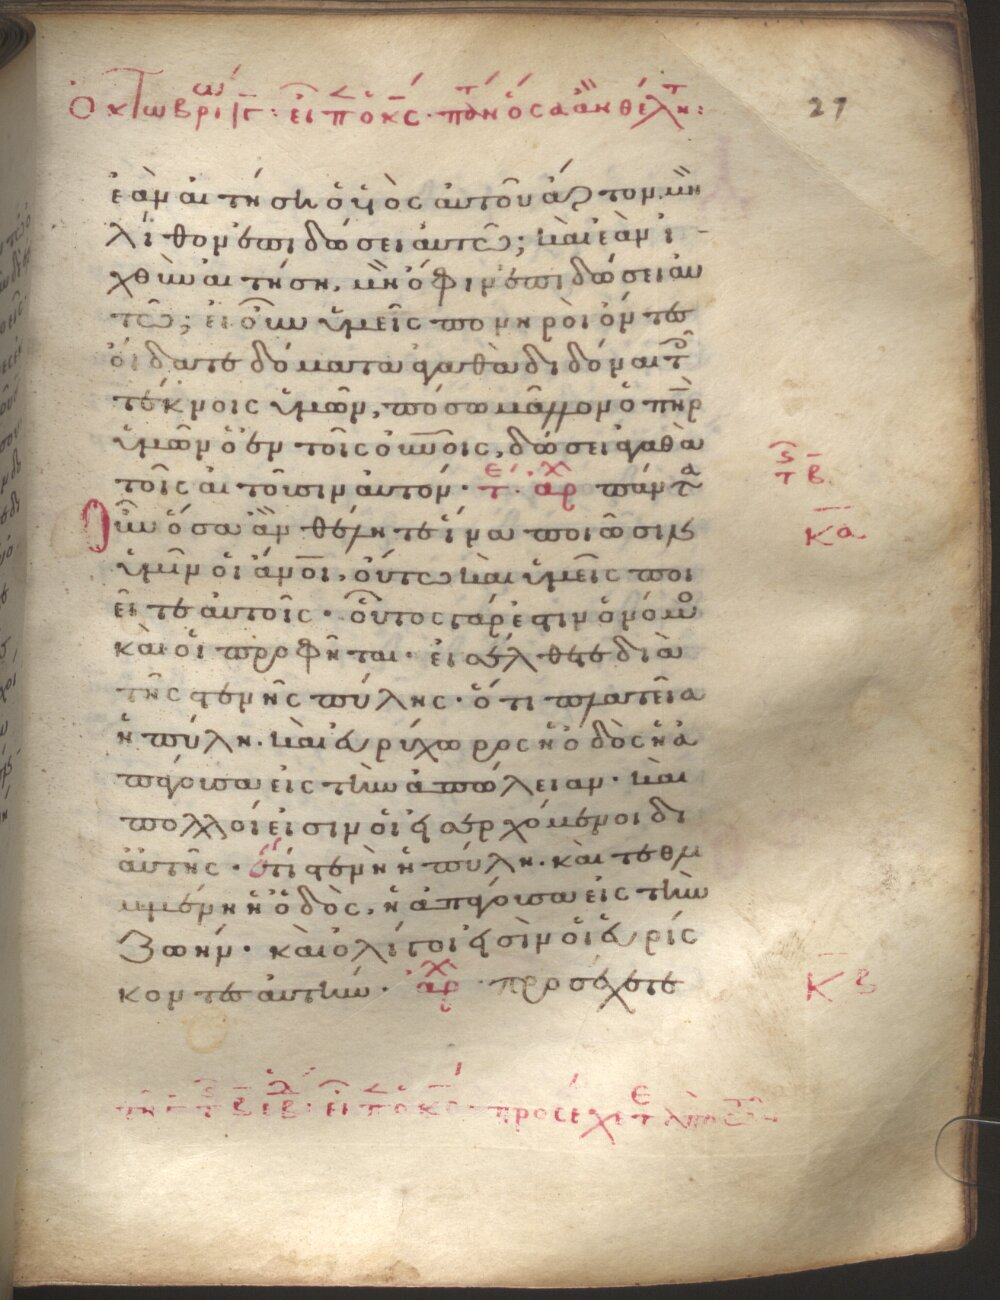 ὀκτωβρι γ · εἶπ ὁ κς · παν ὅσα ἂν θέλητ :
27
ἐὰν αἰτήση ὁ υἱὸς αὐτοῦ ἄρτον, μὴ
λίθον ἐπιδώσει αὐτῶ; καὶ ἐὰν ἰ
χθὺν αἰτήση, μὴ ὄφιν ἐπιδώσει αὐ
τῶ; εἰ οὖν ὑμεῖς πονηροὶ ὄντες
οἴδατε δόματα ἀγαθὰ διδόναι τοῖς
τέκνοις ὑμῶν, πόσω μᾶλλον ὁ πηρ
ὑμῶν ὁ ἐν τοῖς οὐνοῖς, δώσει ἀγαθὰ
τοῖς αἰτοῦσιν αὐτόν · τε · ἀρχ πάντα
οὖν ὅσα ἂν θέλητε ἵνα ποιῶσιν
ὑμῖν οἱ ἀνοι, οὕτω καὶ ὑμεῖς ποι
εῖτε αὐτοῖς · οὗτος γάρ ἐστιν ὁ νόμος
καὶ οἱ προφῆται · εἰσέλθετε διὰ
τῆς στενῆς πύλης · ὅτι πλατεῖα
ἡ πύλη · καὶ εὐρύχωρος ἡ ὁδὸς ἡ ἀ
πάγουσα εἰς τὴν ἀπώλειαν · καὶ
πολλοί εἰσιν οἱ εἰσερχόμενοι δι
αὐτῆς · ὅτι στενὴ ἡ πύλη · καὶ τεθλι
μμένη ἡ ὁδὸς, ἡ ἀπάγουσα εἰς τὴν
ζωήν · καὶ ὀλίγοι εἰσὶν οἱ εὑρίς
κοντες αὐτήν · ἀρχ · προσέχετε
ς τ β
κα
κβ
εἶπ ὁ κς · προσέχετε